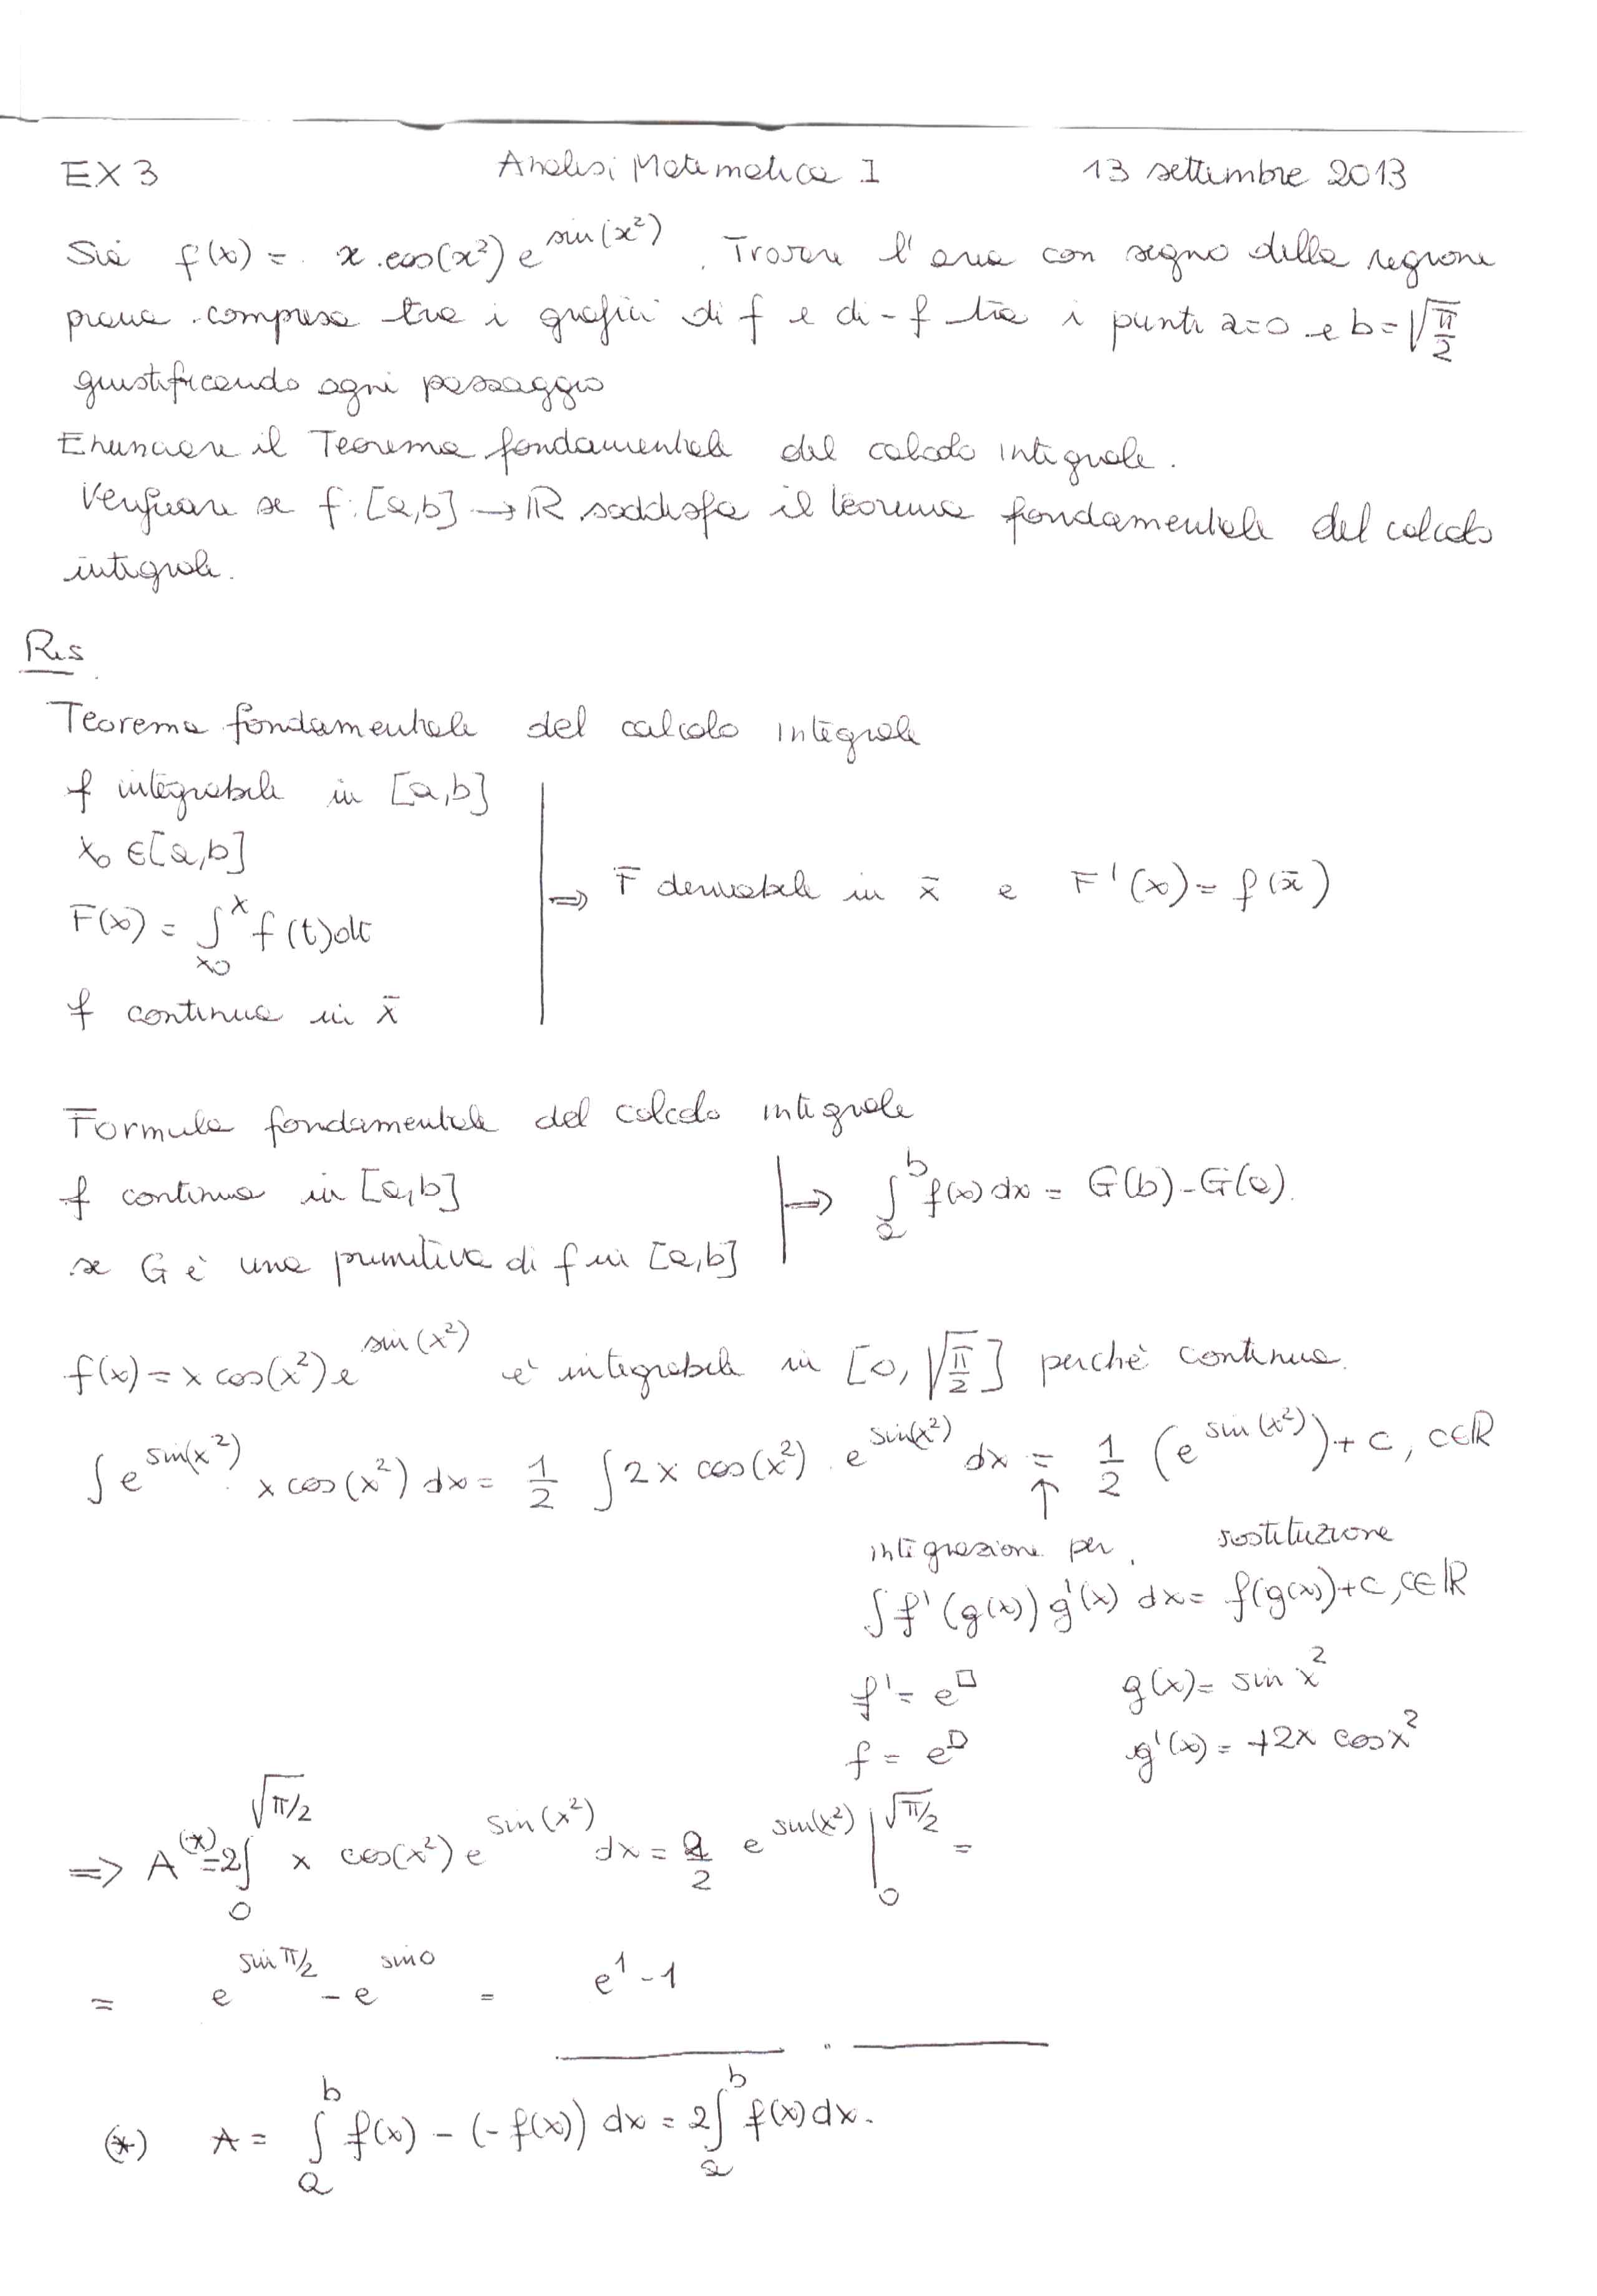 EX 3 Analisi Matematica 1 13 settembre 2013
Sia f(x) = x·cos(x²) e^{sin(x²)}. Trovare l'area con segno della regione
piana compresa tra i grafici di f e di -f tra i punti a=0 e b=√(π/2)
giustificando ogni passaggio
Enunciare il Teorema fondamentale del calcolo integrale.
Verificare se f:[a,b]→ℝ soddisfa il teorema fondamentale del calcolo
integrale.
Ris
Teorema fondamentale del calcolo integrale
f integrabile in [a,b]
x₀ ∈[a,b]
F(x) = ∫_{x₀}^{x} f(t)dt
f continua in x̄
⇒ F derivabile in x̄ e F'(x) = f(x̄)
Formula fondamentale del calcolo integrale
f continua in [a,b]
se G è una primitiva di f in [a,b]
⇒ ∫_a^b f(x) dx = G(b)-G(a).
f(x) = x cos(x²) e^{sin(x²)} è integrabile in [0, √(π/2)] perchè continua.
∫ e^{sin(x²)} · x cos(x²) dx = 1/2 ∫ 2x cos(x²) · e^{sin(x²)} dx = 1/2 (e^{sin(x²)}) + c, c∈ℝ
↑
integrazione per sostituzione
∫ f'(g(x)) g'(x) dx = f(g(x)) + c, c∈ℝ
f' = e^□ g(x) = sin x²
f = e^□ g'(x) = +2x cos x²
⇒ A (*)= 2∫_0^{√π/2} x cos(x²) e^{sin(x²)} dx = 2/2 e^{sin(x²)} |_0^{√π/2} =
= e^{sin π/2} - e^{sin 0} = e¹ - 1
(*) A = ∫_a^b f(x) - (-f(x)) dx = 2∫_a^b f(x) dx.